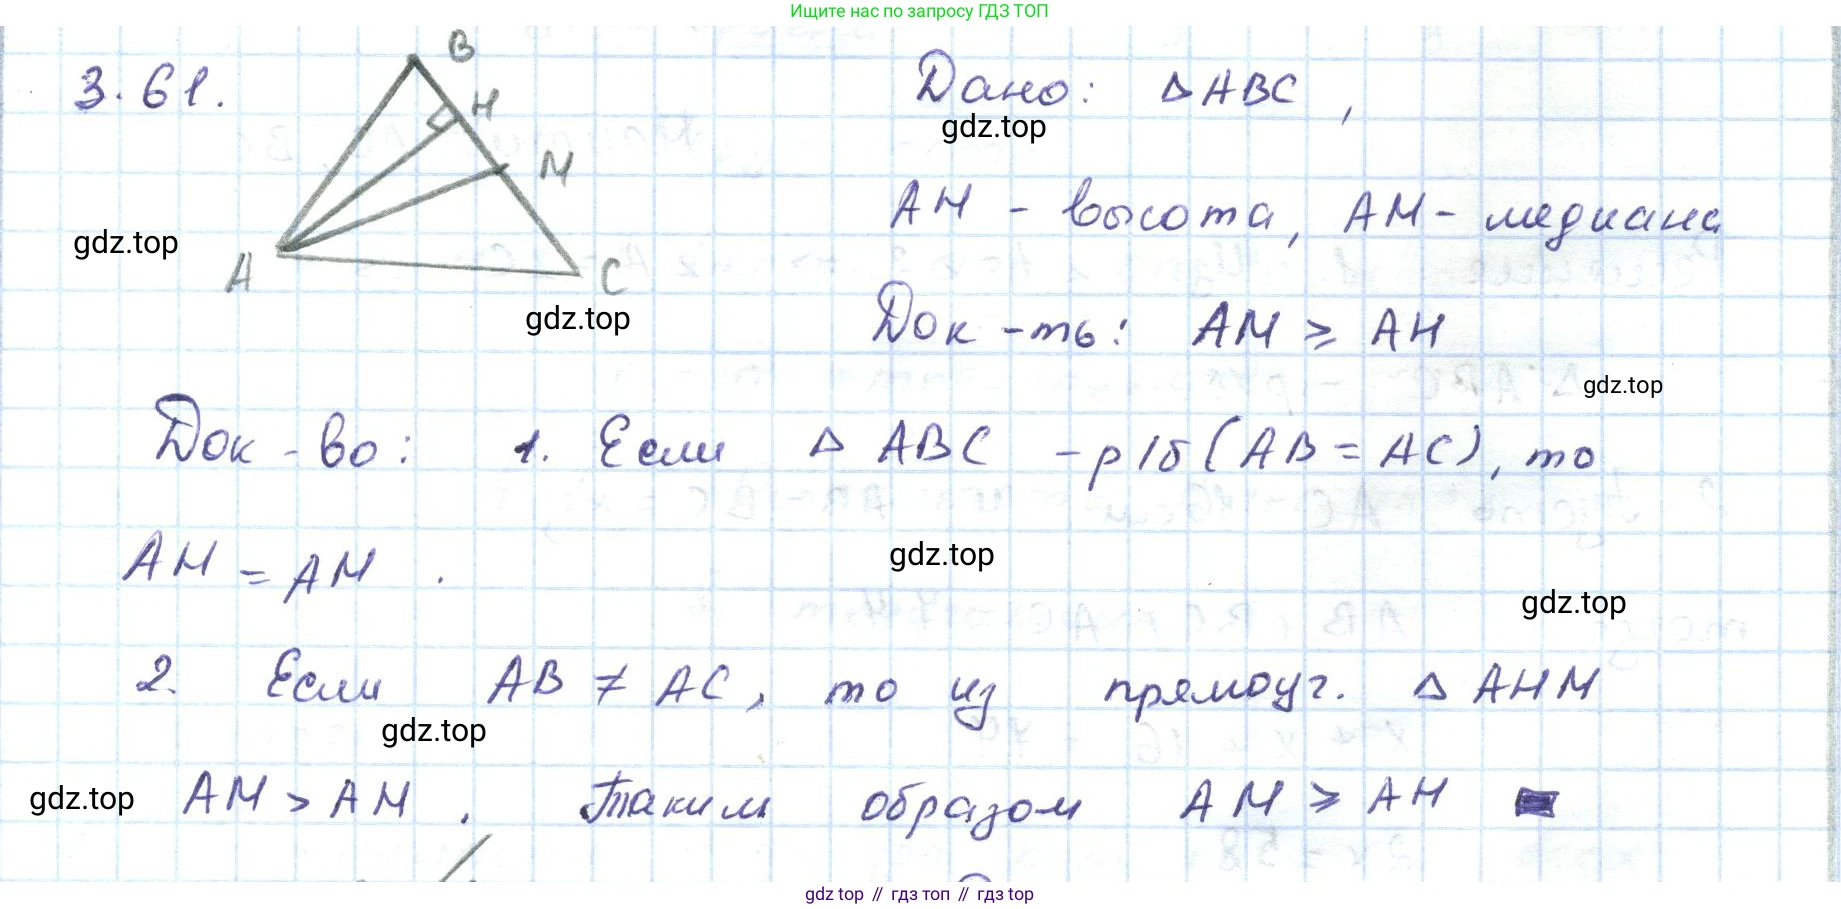 Ищите нас по запросу ГДЗ ТОП
3.61.
B
H
M
A
C
Дано: △ABC,
gdz.top
AH - высота, AM - медиана
gdz.top
Док-ть: AM ⩾ AH
gdz.top
gdz.top
Док-во: 1. Если △ ABC - р/б (AB = AC), то
AH = AM.
gdz.top
gdz.top
2. Если AB ≠ AC, то из прямоуг. △ AHM
gdz.top
gdz.top
AM > AH. Таким образом AM ⩾ AH
gdz top // гдз топ // gdz top